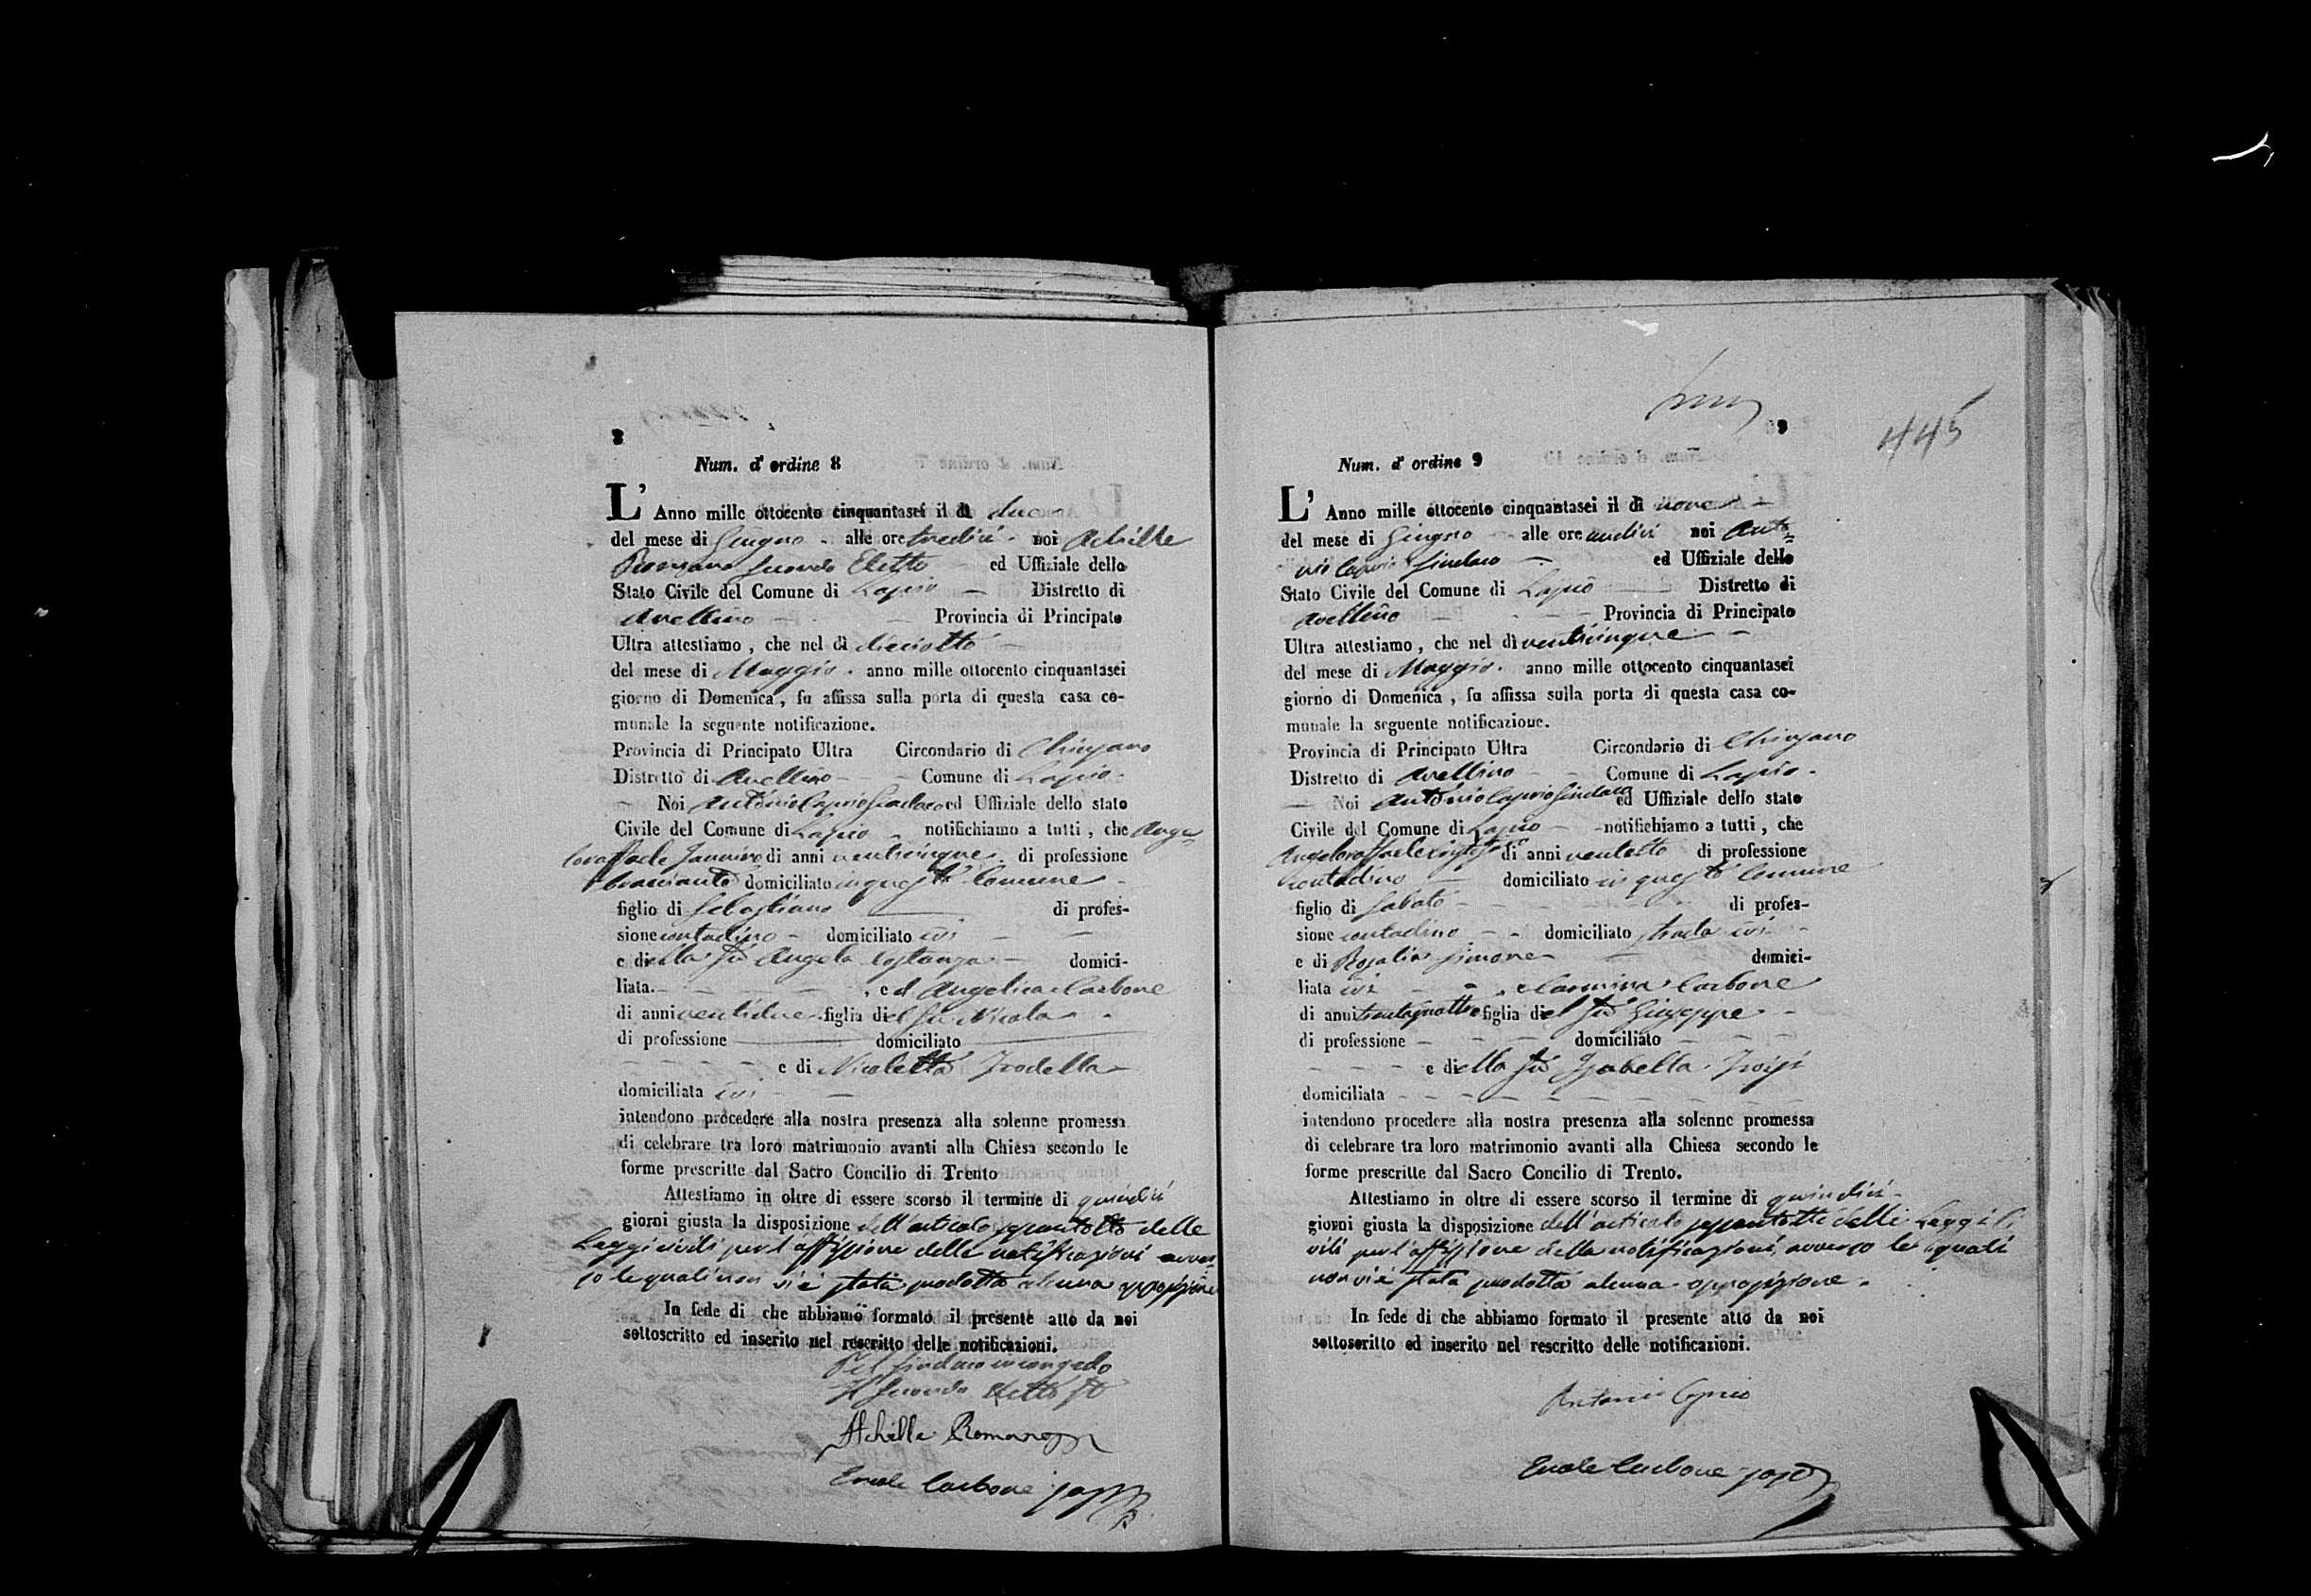 8
Num. d' ordine 8
L' Anno mille ottocento cinquantasei il dì due
del mese di Giugno alle ore tredici noi Achille
Romano secondo Eletto ed Uffiziale dello
Stato Civile del Comune di Lapio Distretto di
Avellino Provincia di Principato
Ultra attestiamo, che nel dì dieciotto
del mese di Maggio anno mille ottocento cinquantasei
giorno di Domenica, fu affissa sulla porta di questa casa co-
munale la seguente notificazione.
Provincia di Principato Ultra Circondario di Chiusano
Distretto di Avellino Comune di Lapio
Noi Antonio Caprio Sindaco ed Uffiziale dello stato
Civile del Comune di Lapio notifichiamo a tutti, che Ange=
loraffaele di anni venticinque di professione
bracciante domiciliato in questo Comune
figlio di Sebastiano di profes-
sione contadino domiciliato ivi
e di ella fù Angela Costanza domici-
liata. ed Angelica Carbone
di anni ventidue figlia di el fù Nicola
di professione domiciliato
e di Nicoletta Trodella
domiciliata ivi
intendono procedere alla nostra presenza alla solenne promessa
di celebrare tra loro matrimonio avanti alla Chiesa secondo le
forme prescritte dal Sacro Concilio di Trento
Attestiamo in oltre di essere scorso il termine di quindici
giorni giusta la disposizione dell'articolo sessantotto delle
Leggi civili per l'affissione delle notificazioni avver=
so le quali non vi è stata prodotta alcuna opposizione
In fede di che abbiamo formato il presente atto da noi
sottoscritto ed inserito nel rescritto delle notificazioni.
Pel Sindaco in congedo
Il secondo Eletto
Achille Romano
Ercole Carbone
9
445
Num. d' ordine 9
L' Anno mille ottocento cinquantasei il dì nove
del mese di Giugno alle ore undici noi Anto=
nio Caprio Sindaco ed Uffiziale dello
Stato Civile del Comune di Lapio Distretto di
Avellino Provincia di Principato
Ultra attestiamo, che nel dì venticinque
del mese di Maggio anno mille ottocento cinquantasei
giorno di Domenica, fu affissa sulla porta di questa casa co-
munale la seguente notificazione.
Provincia di Principato Ultra Circondario di Chiusano
Distretto di Avellino Comune di Lapio
Noi Antonio Caprio Sindaco ed Uffiziale dello stato
Civile del Comune di Lapio notifichiamo a tutti, che
Angeloraffaele di anni ventotto di professione
contadino domiciliato in questo Comune
figlio di Sabato di profes-
sione contadino domiciliato strada ivi
e di Rosalia Simone domici-
liata ivi e Carmina Carbone
di anni trentaquattro figlia di el fù Giuseppe
di professione domiciliato
e di ella fù Isabella Troisi
domiciliata
intendono procedere alla nostra presenza alla solenne promessa
di celebrare tra loro matrimonio avanti alla Chiesa secondo le
forme prescritte dal Sacro Concilio di Trento.
Attestiamo in oltre di essere scorso il termine di quindici
giorni giusta la disposizione dell'articolo sessantotto delle Leggi Ci
vili per l'affissione della notificazioni, avverso le quali
non vi è stata prodotta alcuna opposizione.
In fede di che abbiamo formato il presente atto da noi
sottoscritto ed inserito nel rescritto delle notificazioni.
Antonio Caprio
Ercole Carbone